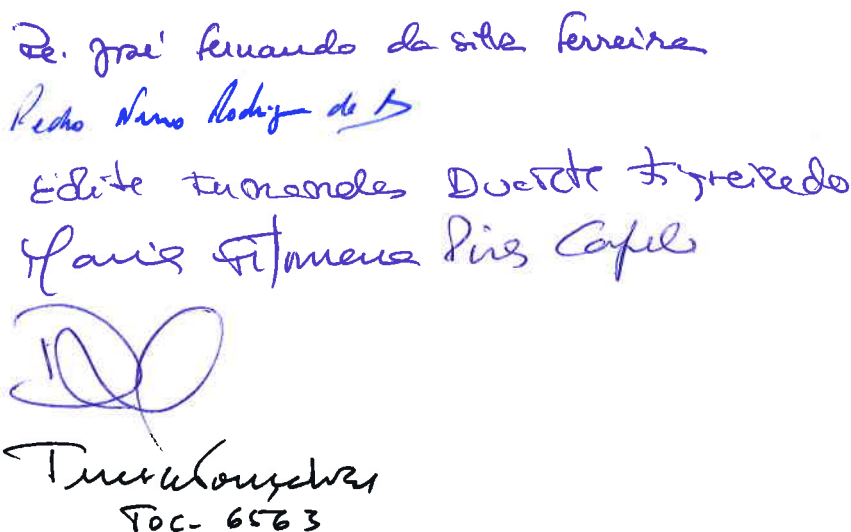 Pe. José Fernando da Silva Ferreira
Pedro Nuno Rodrig de
Edite Fernandes Duarte Figueiredo
Maria Filomena Pires Capelo
Gonçalves
TOC- 6563